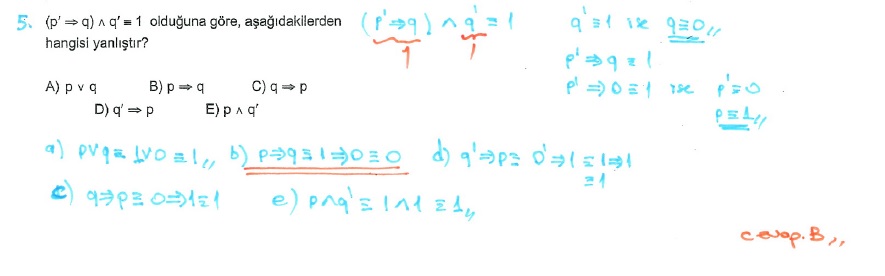 5. (p' ⇒ q) ∧ q' ≡ 1 olduğuna göre, aşağıdakilerden
hangisi yanlıştır?
A) p ∨ q B) p ⇒ q C) q ⇒ p
D) q' ⇒ p E) p ∧ q'
(p' ⇒ q) ∧ q' ≡ 1
1 1
q' ≡ 1 ise q ≡ 0,,
p' ⇒ q ≡ 1
p' ⇒ 0 ≡ 1 ise p' ≡ 0
p ≡ 1,,
a) p∨q ≡ 1∨0 ≡ 1,, b) p⇒q ≡ 1⇒0 ≡ 0 d) q'⇒p ≡ 0'⇒1 ≡ 1⇒1
≡ 1
c) q⇒p ≡ 0⇒1 ≡ 1 e) p∧q' ≡ 1∧1 ≡ 1,,
cevap. B,,